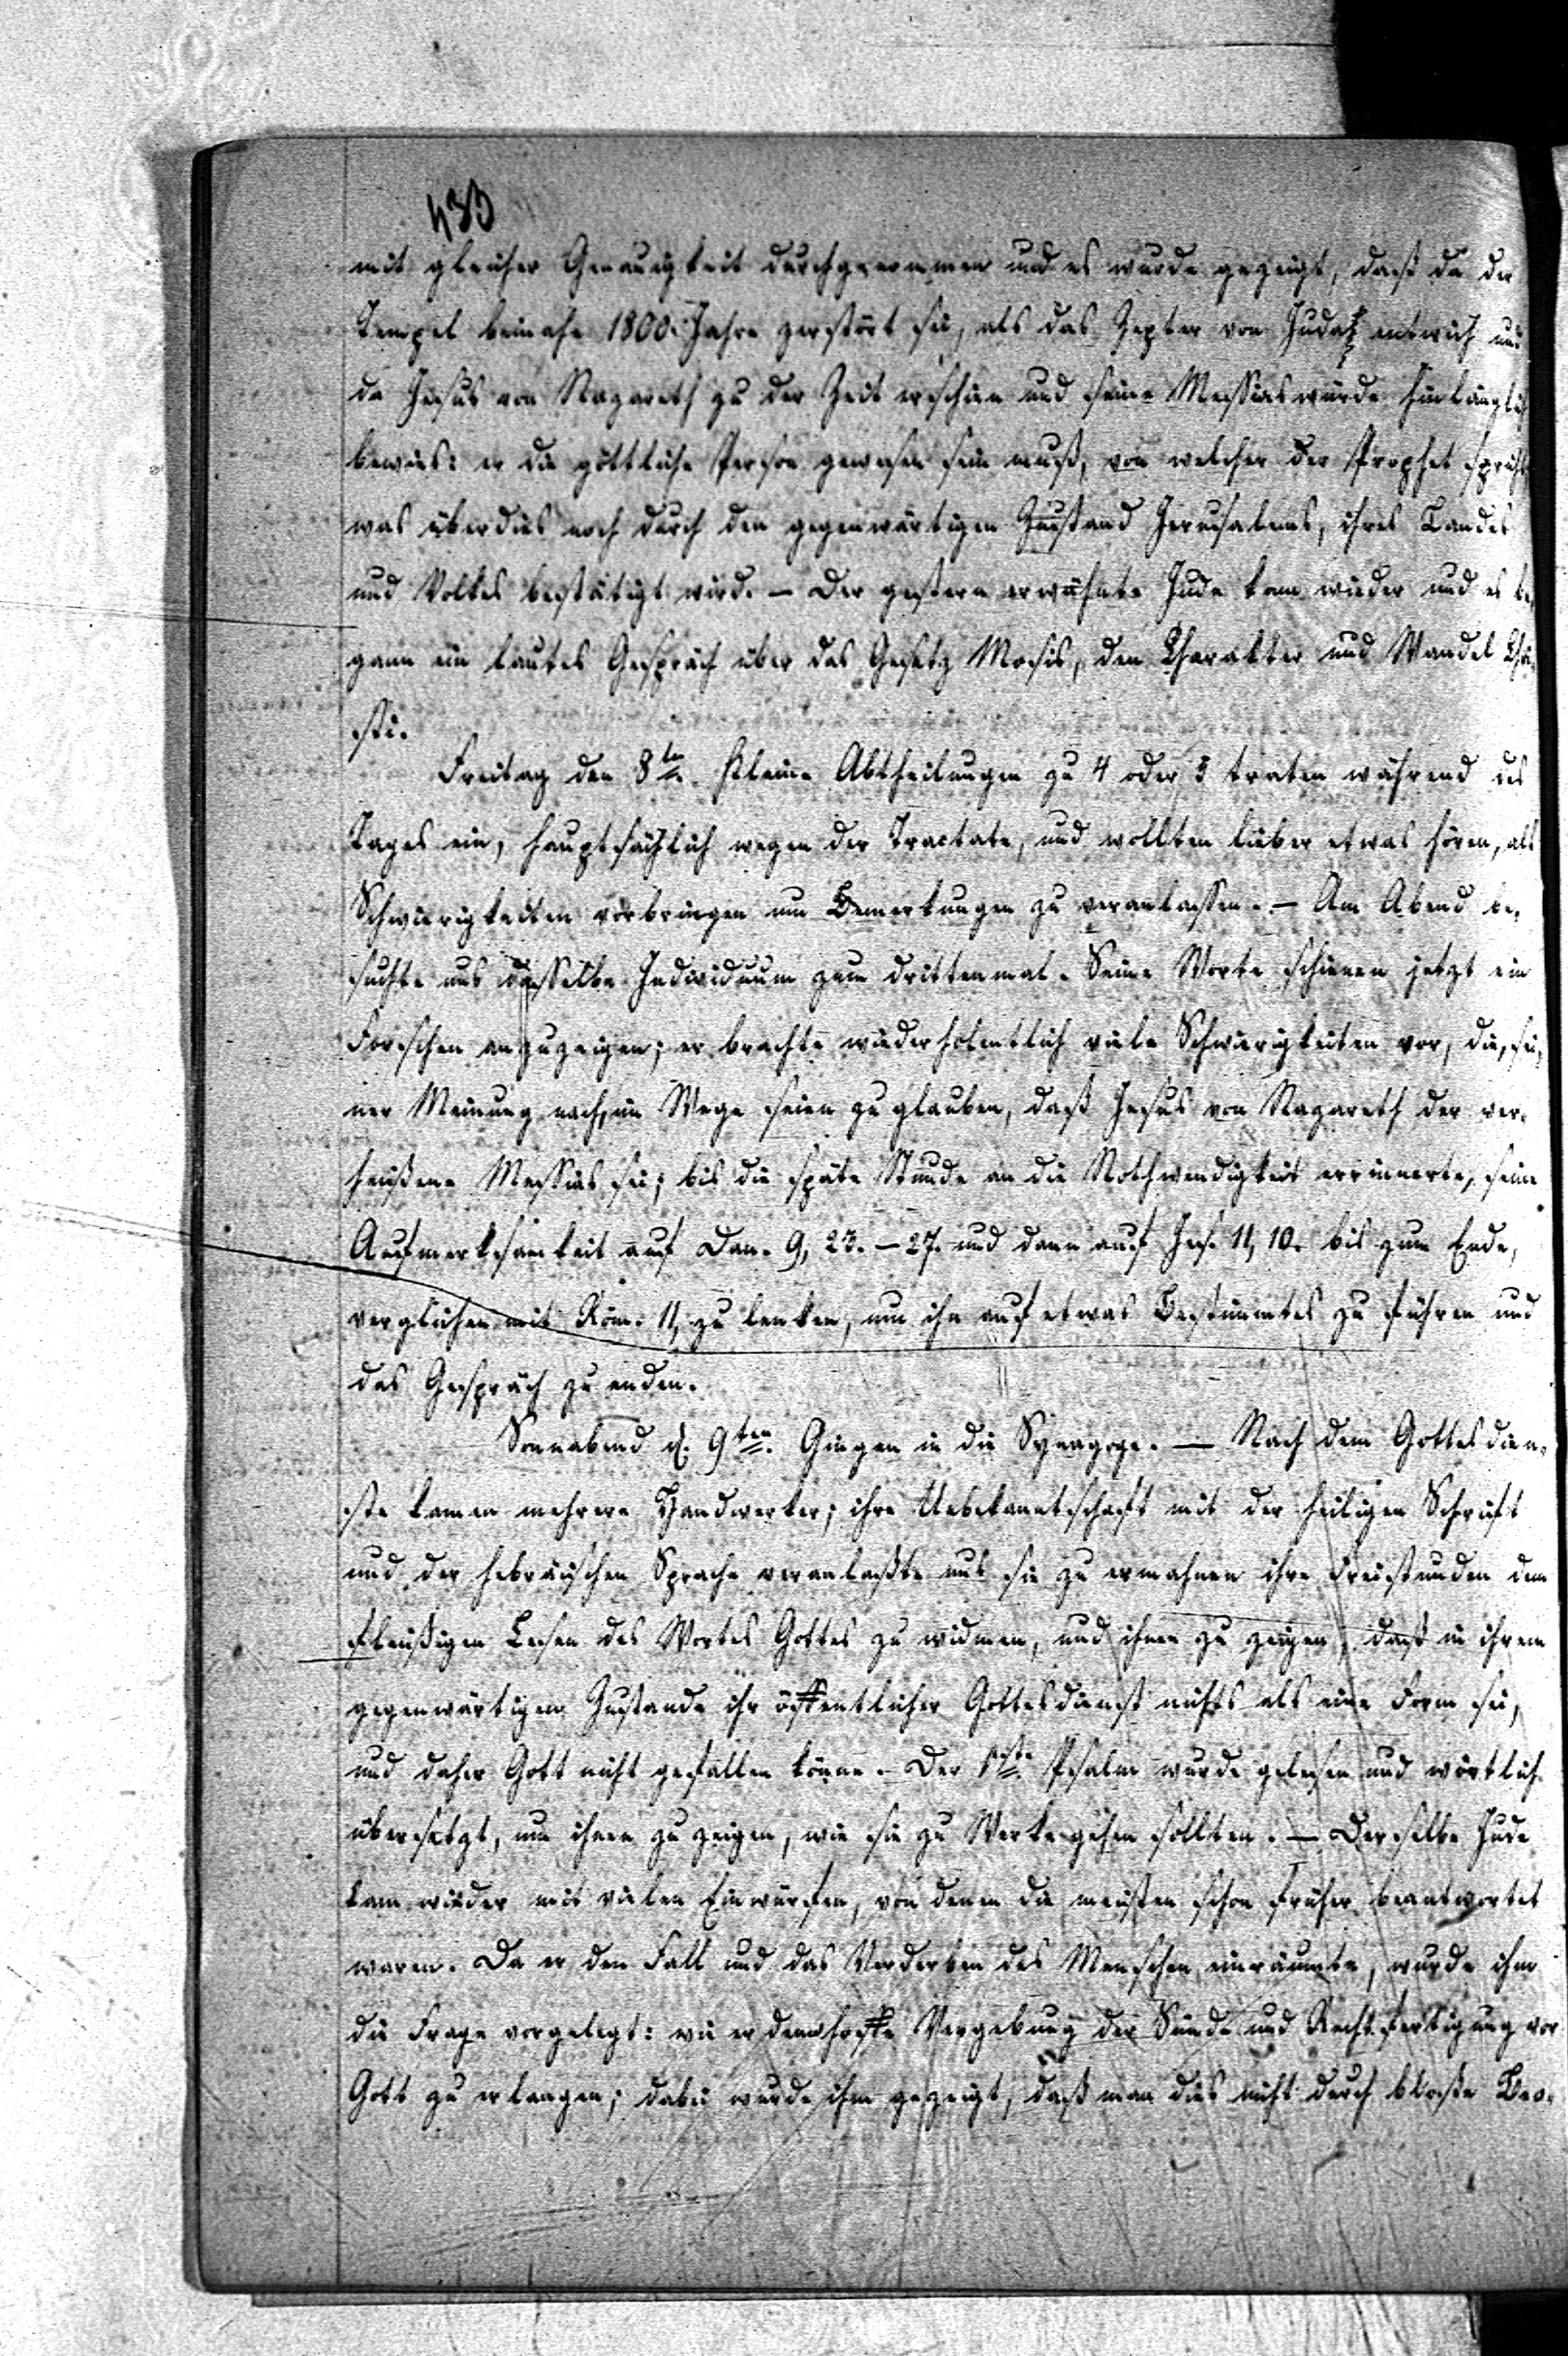 433
mit gleicher Genauigkeit durchgenommen und es wurde gezeigt, daß da der
Tempel beinahe 1800 Jahre zerstört sei, als das Zepter von Judah entwich und
da Jesus von Nazareth zu der Zeit erschien und seine Messiaswürde hinlänglich
bewies: er die göttliche Person gewesen sein muß, von welcher der Prophet spricht
was überdies noch durch den gegenwärtigen Zustand Jerusalems, ihres Landes
und Volkes bestätigt wird. – Der gestern erwähnte Jude kam wieder und es be-
gann ein lautes Gespräch über das Gesetz Mosis, den Charakter und Wandel Chri-
sti.
Freitag den 8ten. Kleine Abtheilungen zu 4 oder 5 traten während des
Tages ein, hauptsächlich wegen der Tractate, und wollten lieber etwas hören, als
Schwierigkeiten vorbringen um Bemerkungen zu veranlassen. – Am Abend be-
suchte uns dasselbe Individuum zum drittenmal. Seine Worte schienen jetzt ein
Forschen anzuzeigen; er brachte wiederholentlich viele Schwierigkeiten vor, die, sei-
ner Meinung nach, im Wege seien zu glauben, daß Jesus von Nazareth der ver-
heißene Messias sei; bis die späte Stunde an die Nothwendigkeit errinnerte, seine
Aufmerksamkeit auf Dan. 9, 23. – 27. und dann auf Jes. 11, 10. bis zum Ende,
verglichen mit Röm. 11, zu lenken, um ihn auf etwas Bestimmtes zu führen und
das Gespräch zu enden.
Sonnabend d. 9ten. Gingen in die Synagoge. – Nach dem Gottesdien-
ste kamen mehrere Handwerker; ihre Unbekanntschaft mit der heiligen Schrift
und der hebräischen Sprache veranlaßte uns sie zu ermahnen ihre Freistunden dem
fleißigen Lesen des Wortes Gottes zu widmen, und ihnen zu zeigen, daß in ihrem
gegenwärtigen Zustande ihr öffentlicher Gottesdienst nichts als eine Form sei,
und daher Gott nicht gefallen könne. – Der 1ste Psalm wurde gelesen und wörtlich
übersetzt, um ihnen zu zeigen, wie sie zu Werke gehen sollten. – Derselbe Jude
kam wieder mit vielen Einwürfen, von denen die meisten schon früher beantwortet
waren. Da er den Fall und das Verderben des Menschen einräumte, wurde ihm
die Frage vorgelegt: wie er denn hoffe Vergebung der Sünde und Rechtfertigung vor
Gott zu erlangen; dabei wurde ihm gezeigt, daß man dies nicht durch bloße Beo-